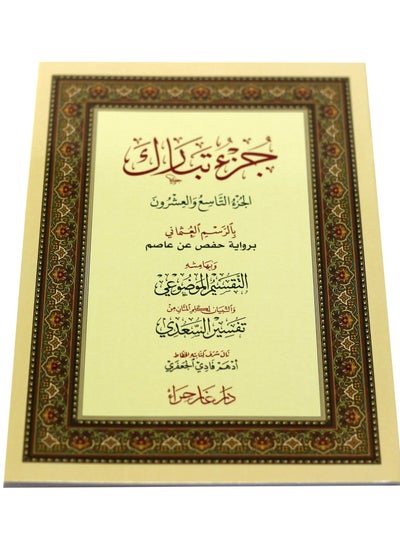 جزء تبارك
الجزء التاسع والعشرون
بالرسم العثماني
برواية حفص عن عاصم
وبهامشه
التقسيم الموضوعي
والتبيان لكلم المثان من
تفسير السعدي
نال شرف كتابته الخطاط
أدهم فادي الجعفري
دار غار حراء